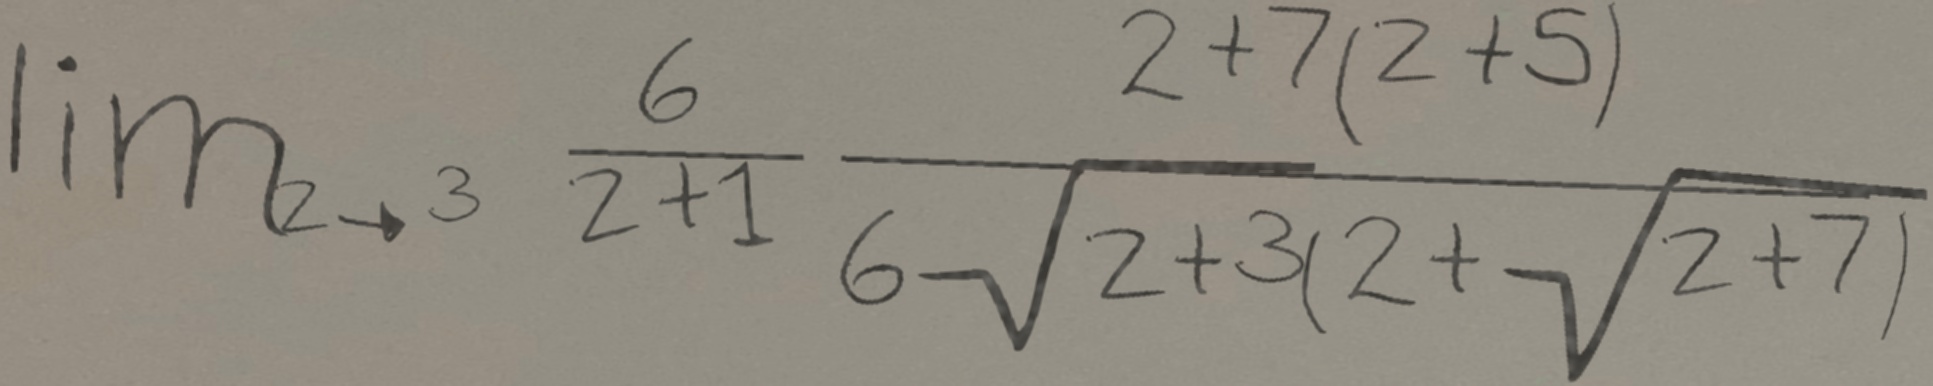 lim_{z→3} \frac{6}{z+1} \frac{z+7(z+5)}{6\sqrt{z+3}(z+\sqrt{z+7})}